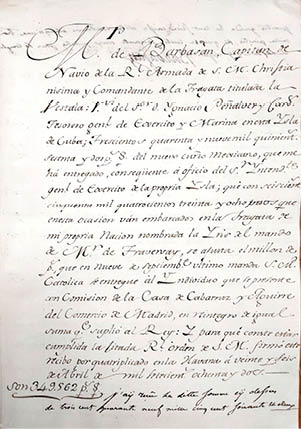 M.r
de Barbasan, Capitan de
Navio de la R.l Armada de S. M. Christia
nisima y Comandante de la Fragata titulada la
del S.or D. Ignacio Peñalver y Card.
Tesorero gen.l de Exercito y Marina en esta Ysla
de Cuba; Trescientos quarenta y nueve mil quinient.s
sesenta y dos p.s f.s del nuevo cuño Mexicano, que me
há entregado, consequente á oficio del S.or Yntend.te
gen.l de Exercito de la propia Ysla; que con seiscientos
cinquenta mil quatrocientos treinta y ocho pesos que
en esta ocasion ván embarcados en la Fragata de
mi propia Nacion nombrada la del mando de
M.r de se ajusta el millon de
p.s que en nueve de Septiembre ultimo manda S. M.
Catolica se entregue al Yndividuo que se presente
con Comision de la Casa de Cabarrus, y Aguirre
del Comercio de Madrid, en reintegro de igual
suma q.e suplió al Rey: Y para que conste estar
cumplida la citada R.l orden de S. M. firmo este
recibo por quadriplicado en la Havana á veinte y seis
de Abril de mil setecientos ochenta y dos.
Son 349.562 p.s f.s
de trois cent quarante neuf mille cinq cent